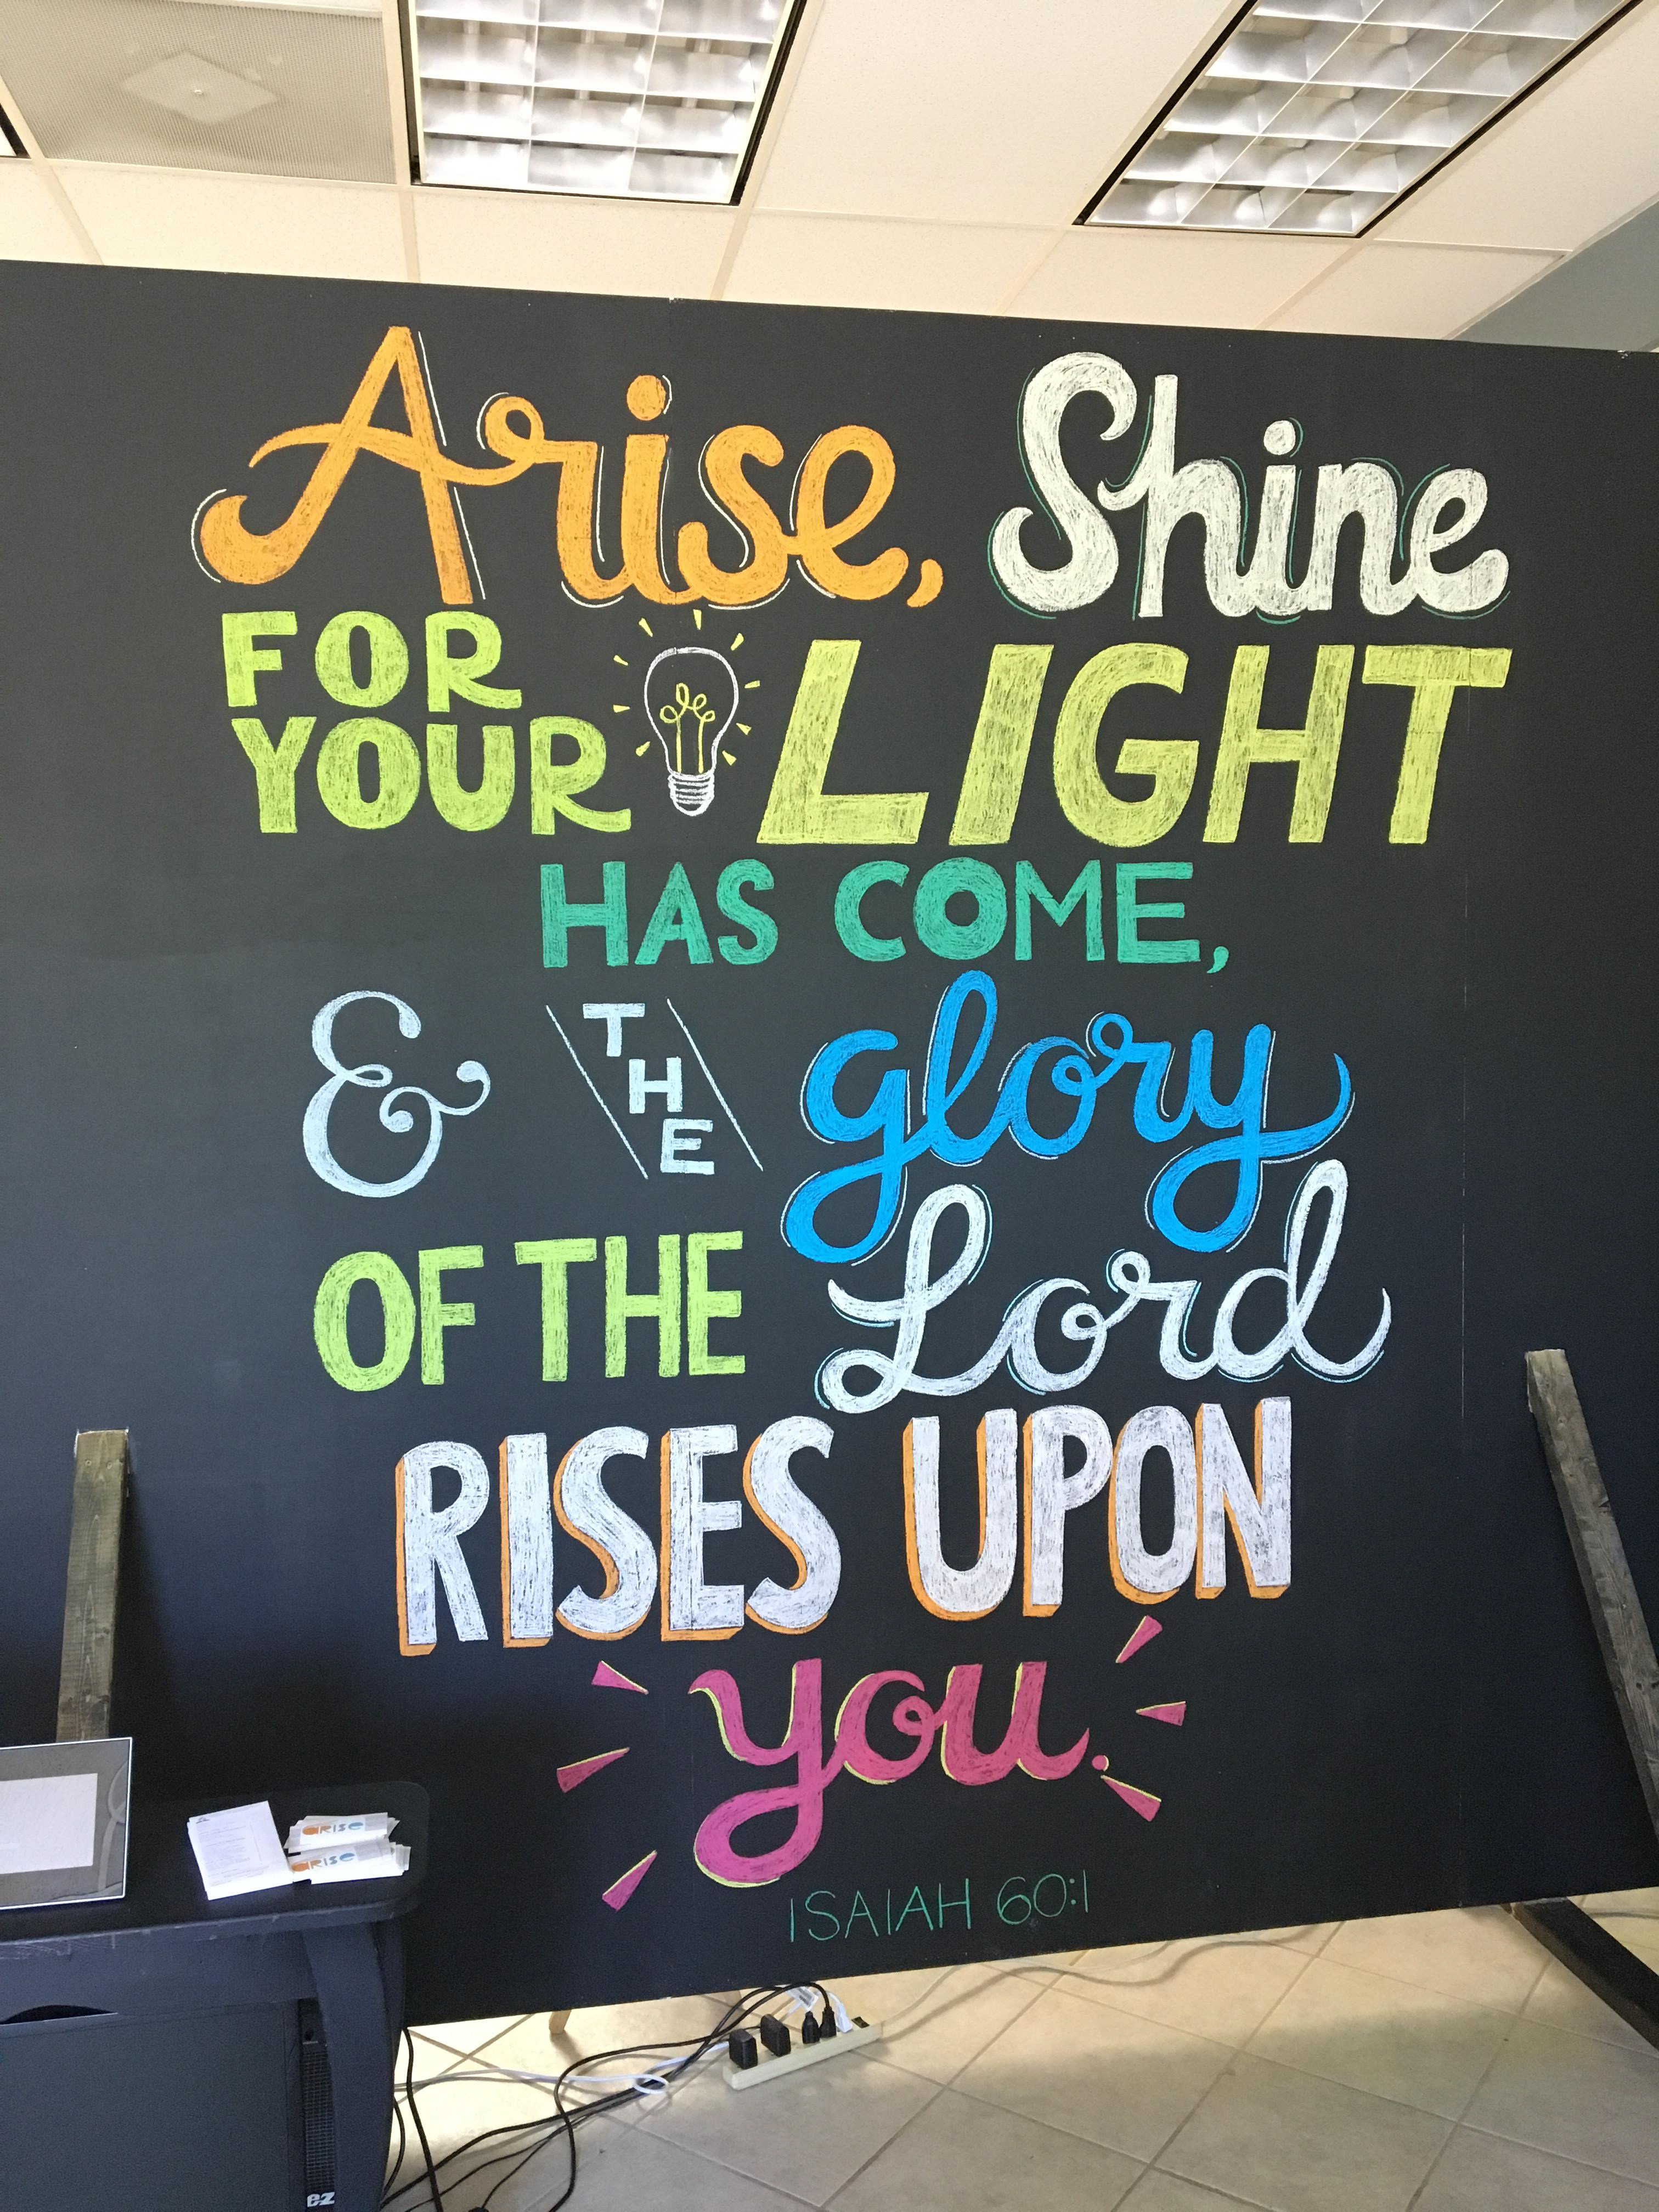 Arise, Shine
FOR
YOUR LIGHT
HAS COME,
& THE glory
OF THE Lord
RISES UPON
you.
ISAIAH 60:1
ARISE
ARISE
e-z